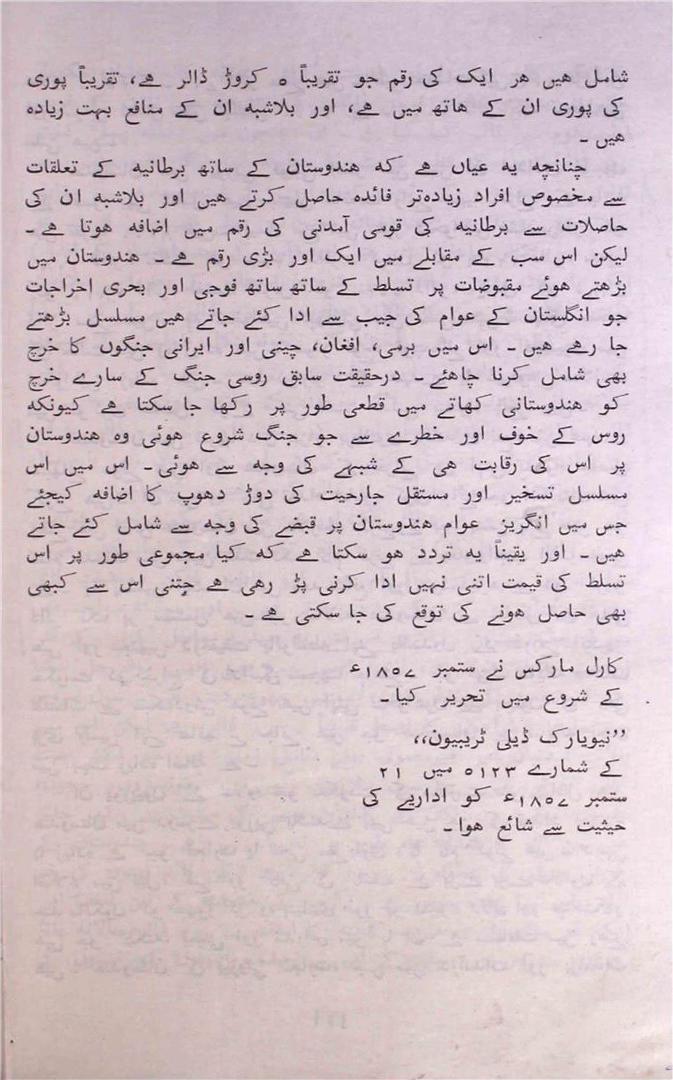 شامل هیں هر ایک کی رقم جو تقریباً ۵ کروڑ ڈالر هے، تقریباً پوری
کی پوری ان کے هاتھ میں هے، اور بلاشبه ان کے منافع بہت زیاده
هیں ۔
چنانچه یه عیاں هے که هندوستان کے ساتھ برطانیه کے تعلقات
سے مخصوص افراد زیاده‌تر فائده حاصل کرتے هیں اور بلاشبه ان کی
حاصلات سے برطانیه کی قومی آمدنی کی رقم میں اضافه هوتا هے ۔
لیکن اس سب کے مقابلے میں ایک اور بڑی رقم هے ۔ هندوستان میں
بڑھتے هوئے مقبوضات پر تسلط کے ساتھ ساتھ فوجی اور بحری اخراجات
جو انگلستان کے عوام کی جیب سے ادا کئے جاتے هیں مسلسل بڑھتے
جا رهے هیں ۔ اس میں برمی، افغان، چینی اور ایرانی جنگوں کا خرچ
بھی شامل کرنا چاهئے ۔ درحقیقت سابق روسی جنگ کے سارے خرچ
کو هندوستانی کھاتے میں قطعی طور پر رکھا جا سکتا هے کیونکه
روس کے خوف اور خطرے سے جو جنگ شروع هوئی وه هندوستان
پر اس کی رقابت هی کے شبہے کی وجه سے هوئی ۔ اس میں اس
مسلسل تسخیر اور مستقل جارحیت کی دوڑ دھوپ کا اضافه کیجئے
جس میں انگریز عوام هندوستان پر قبضے کی وجه سے شامل کئے جاتے
هیں ۔ اور یقیناً یه تردد هو سکتا هے که کیا مجموعی طور پر اس
تسلط کی قیمت اتنی نہیں ادا کرنی پڑ رهی هے جتنی اس سے کبھی
بھی حاصل هونے کی توقع کی جا سکتی هے ۔
کارل مارکس نے ستمبر ۱۸۵۷ء
کے شروع میں تحریر کیا ۔
’’نیویارک ڈیلی ٹریبیون،،
کے شمارے ۵۱۲۳ میں ۲۱
ستمبر ۱۸۵۷ء کو اداریے کی
حیثیت سے شائع هوا ۔